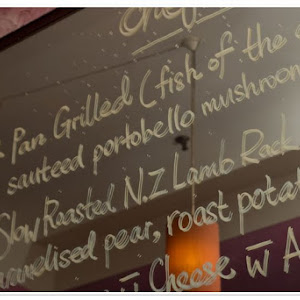 Chef
Pan Grilled (fish of the
sauteed portobello mushroom
Slow Roasted N.Z Lamb Rack
roast potat
pear,
Cheese w